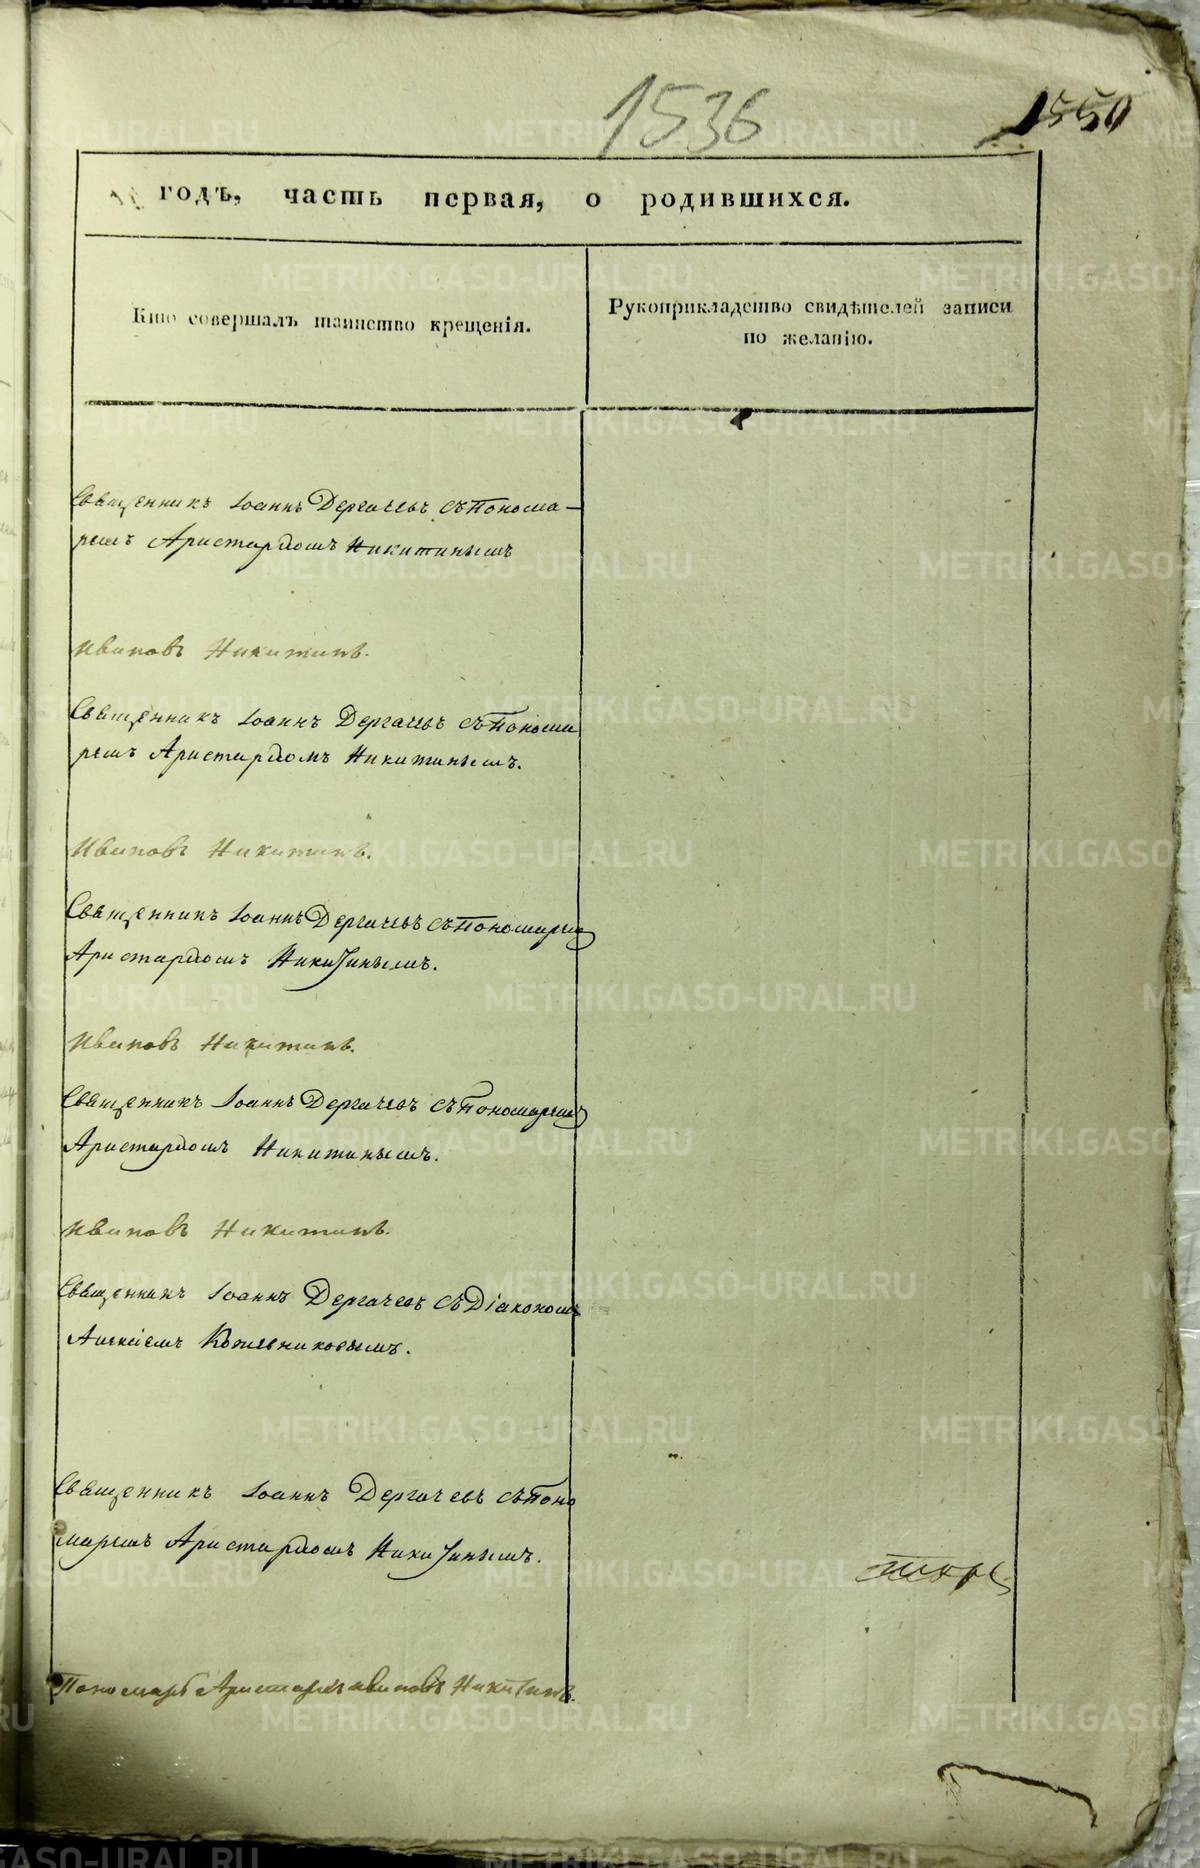 1536
1550
годъ, часть первая, о родившихся.
Кто совершалъ таинство крещенія.
Рукоприкладство свидѣтелей записи
по желанію.
Священникъ Іоаннъ Дергачевъ съ Понома-
ремъ Аристархомъ Никитинымъ
Ивановъ Никитинъ.
Священникъ Іоаннъ Дергачевъ съ Понома
ремъ Аристархомъ Никитинымъ.
Ивановъ Никитинъ.
Священникъ Іоаннъ Дергачевъ съ Пономаремъ
Аристархомъ Никитинымъ.
Ивановъ Никитинъ.
Священникъ Іоаннъ Дергачевъ съ Пономаремъ
Аристархомъ Никитинымъ.
Ивановъ Никитинъ.
Священникъ Іоаннъ Дергачевъ съ Діакономъ
Алексіемъ Кожевниковымъ.
Священникъ Іоаннъ Дергачевъ съ Поно
маремъ Аристархомъ Никитинымъ.
Пономарь Аристархъ Ивановъ Никитинъ.
METRIKI.GASO-URAL.RU